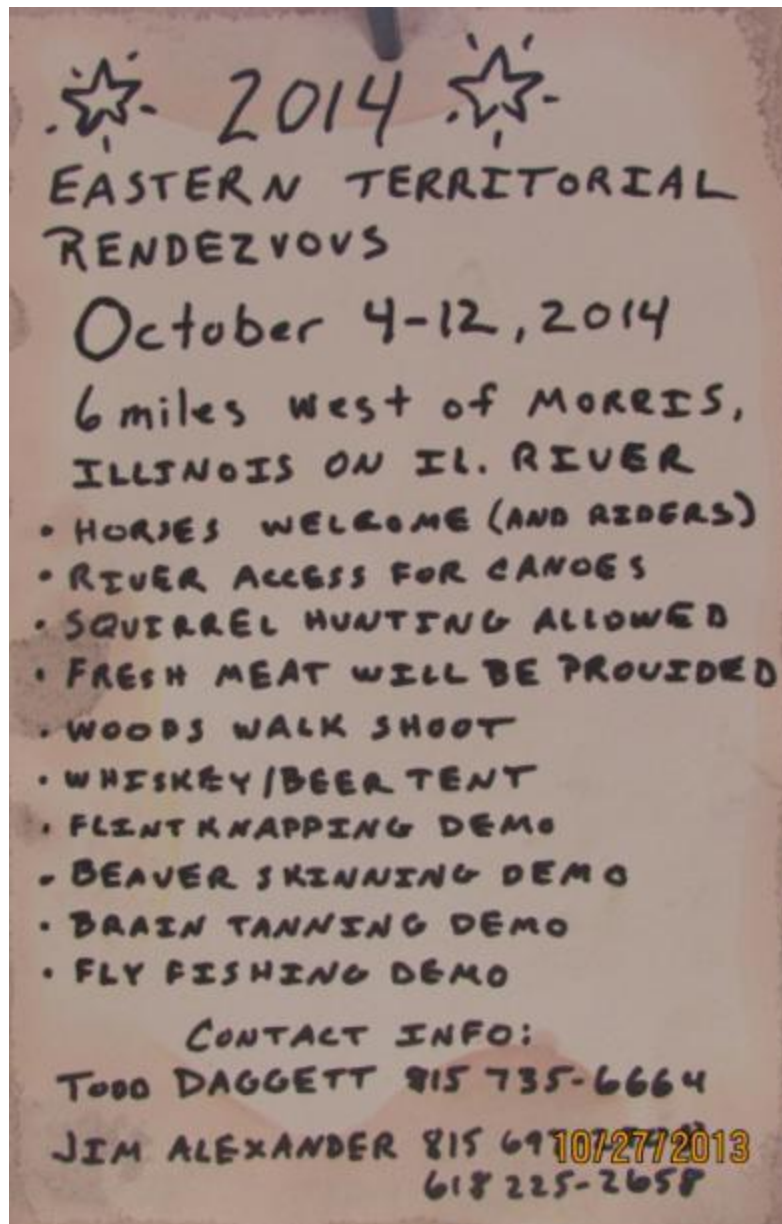 2014
EASTERN TERRITORIAL
RENDEZVOUS
October 4-12, 2014
6 miles west of MORRIS,
ILLINOIS ON IL. RIVER
• HORSES WELCOME (AND RIDERS)
• RIVER ACCESS FOR CANOES
• SQUIRREL HUNTING ALLOWED
• FRESH MEAT WILL BE PROVIDED
• WOODS WALK SHOOT
• WHISKEY/BEER TENT
• FLINT KNAPPING DEMO
• BEAVER SKINNING DEMO
• BRAIN TANNING DEMO
• FLY FISHING DEMO
CONTACT INFO:
TODD DAGGETT 815 735-6664
JIM ALEXANDER 815
10/27/2013
618 225-2658